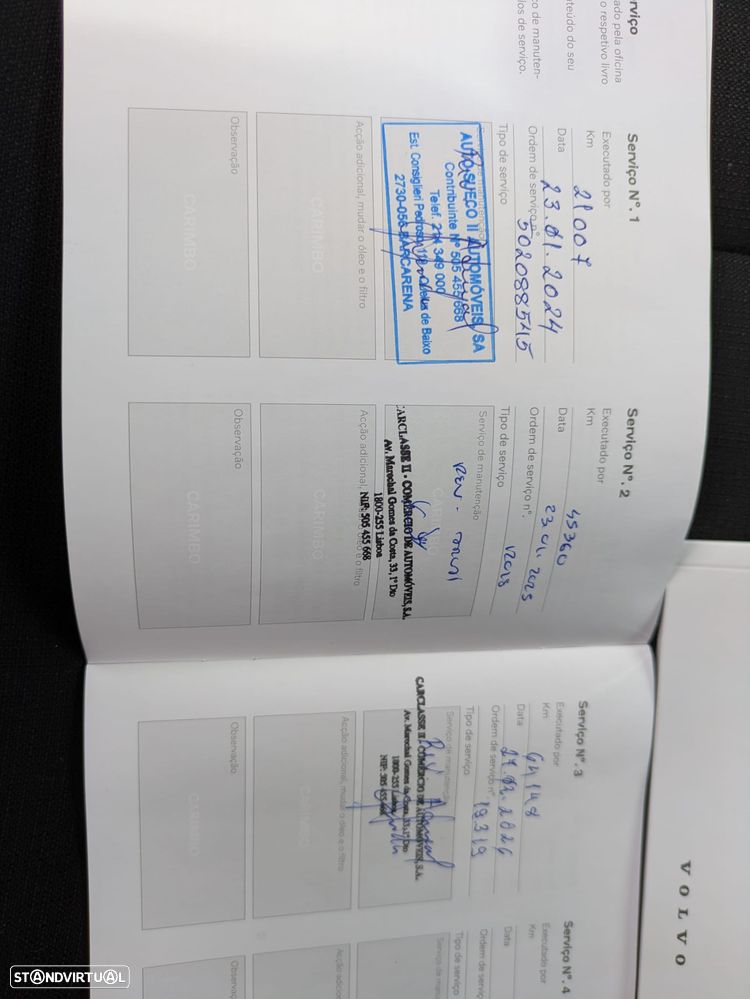 rviço
ado pela oficina
o respetivo livro
teúdo do seu
ço de manuten-
los de serviço.
Serviço Nº. 1
Executado por
Km 21007
Data 23.01.2024
Ordem de serviço nº. 502088545
Tipo de serviço
AUTO SUECO II AUTOMÓVEIS, SA
Contribuinte Nº 505 455 668
Telef. 214 349 000
Est. Consiglieri Pedroso, de Baixo
2730-056 BARCARENA
Acção adicional, mudar o óleo e o filtro
CARIMBO
Observação
CARIMBO
Serviço Nº. 2
Executado por
Km 45360
Data 23.01.2025
Ordem de serviço nº.
Tipo de serviço
Serviço de manutenção
CARCLASSE II - COMÉRCIO DE AUTOMÓVEIS, S.A.
Av. Marechal Gomes da Costa, 33, 1º Dto
1800-255 Lisboa
NIP: 505 455 668
Acção adicional, o óleo e o filtro
CARIMBO
Observação
CARIMBO
Serviço Nº. 3
Executado por
Km 64148
Data
Ordem de serviço nº. 19319
Tipo de serviço
Serviço de manutenção
CARCLASSE II - COMÉRCIO DE AUTOMÓVEIS, S.A.
Av. Marechal Gomes da Costa, 33, 1º Dto
1800-255 Lisboa
NIP: 505 455 668
Acção adicional, mudar o óleo e o filtro
CARIMBO
Observação
CARIMBO
Serviço Nº. 4
Executado por
Km
Data
Ordem de serviç
Tipo de serviço
Serviço de manu
Acção adicion
Observaç
VOLVO
STANDVIRTUAL